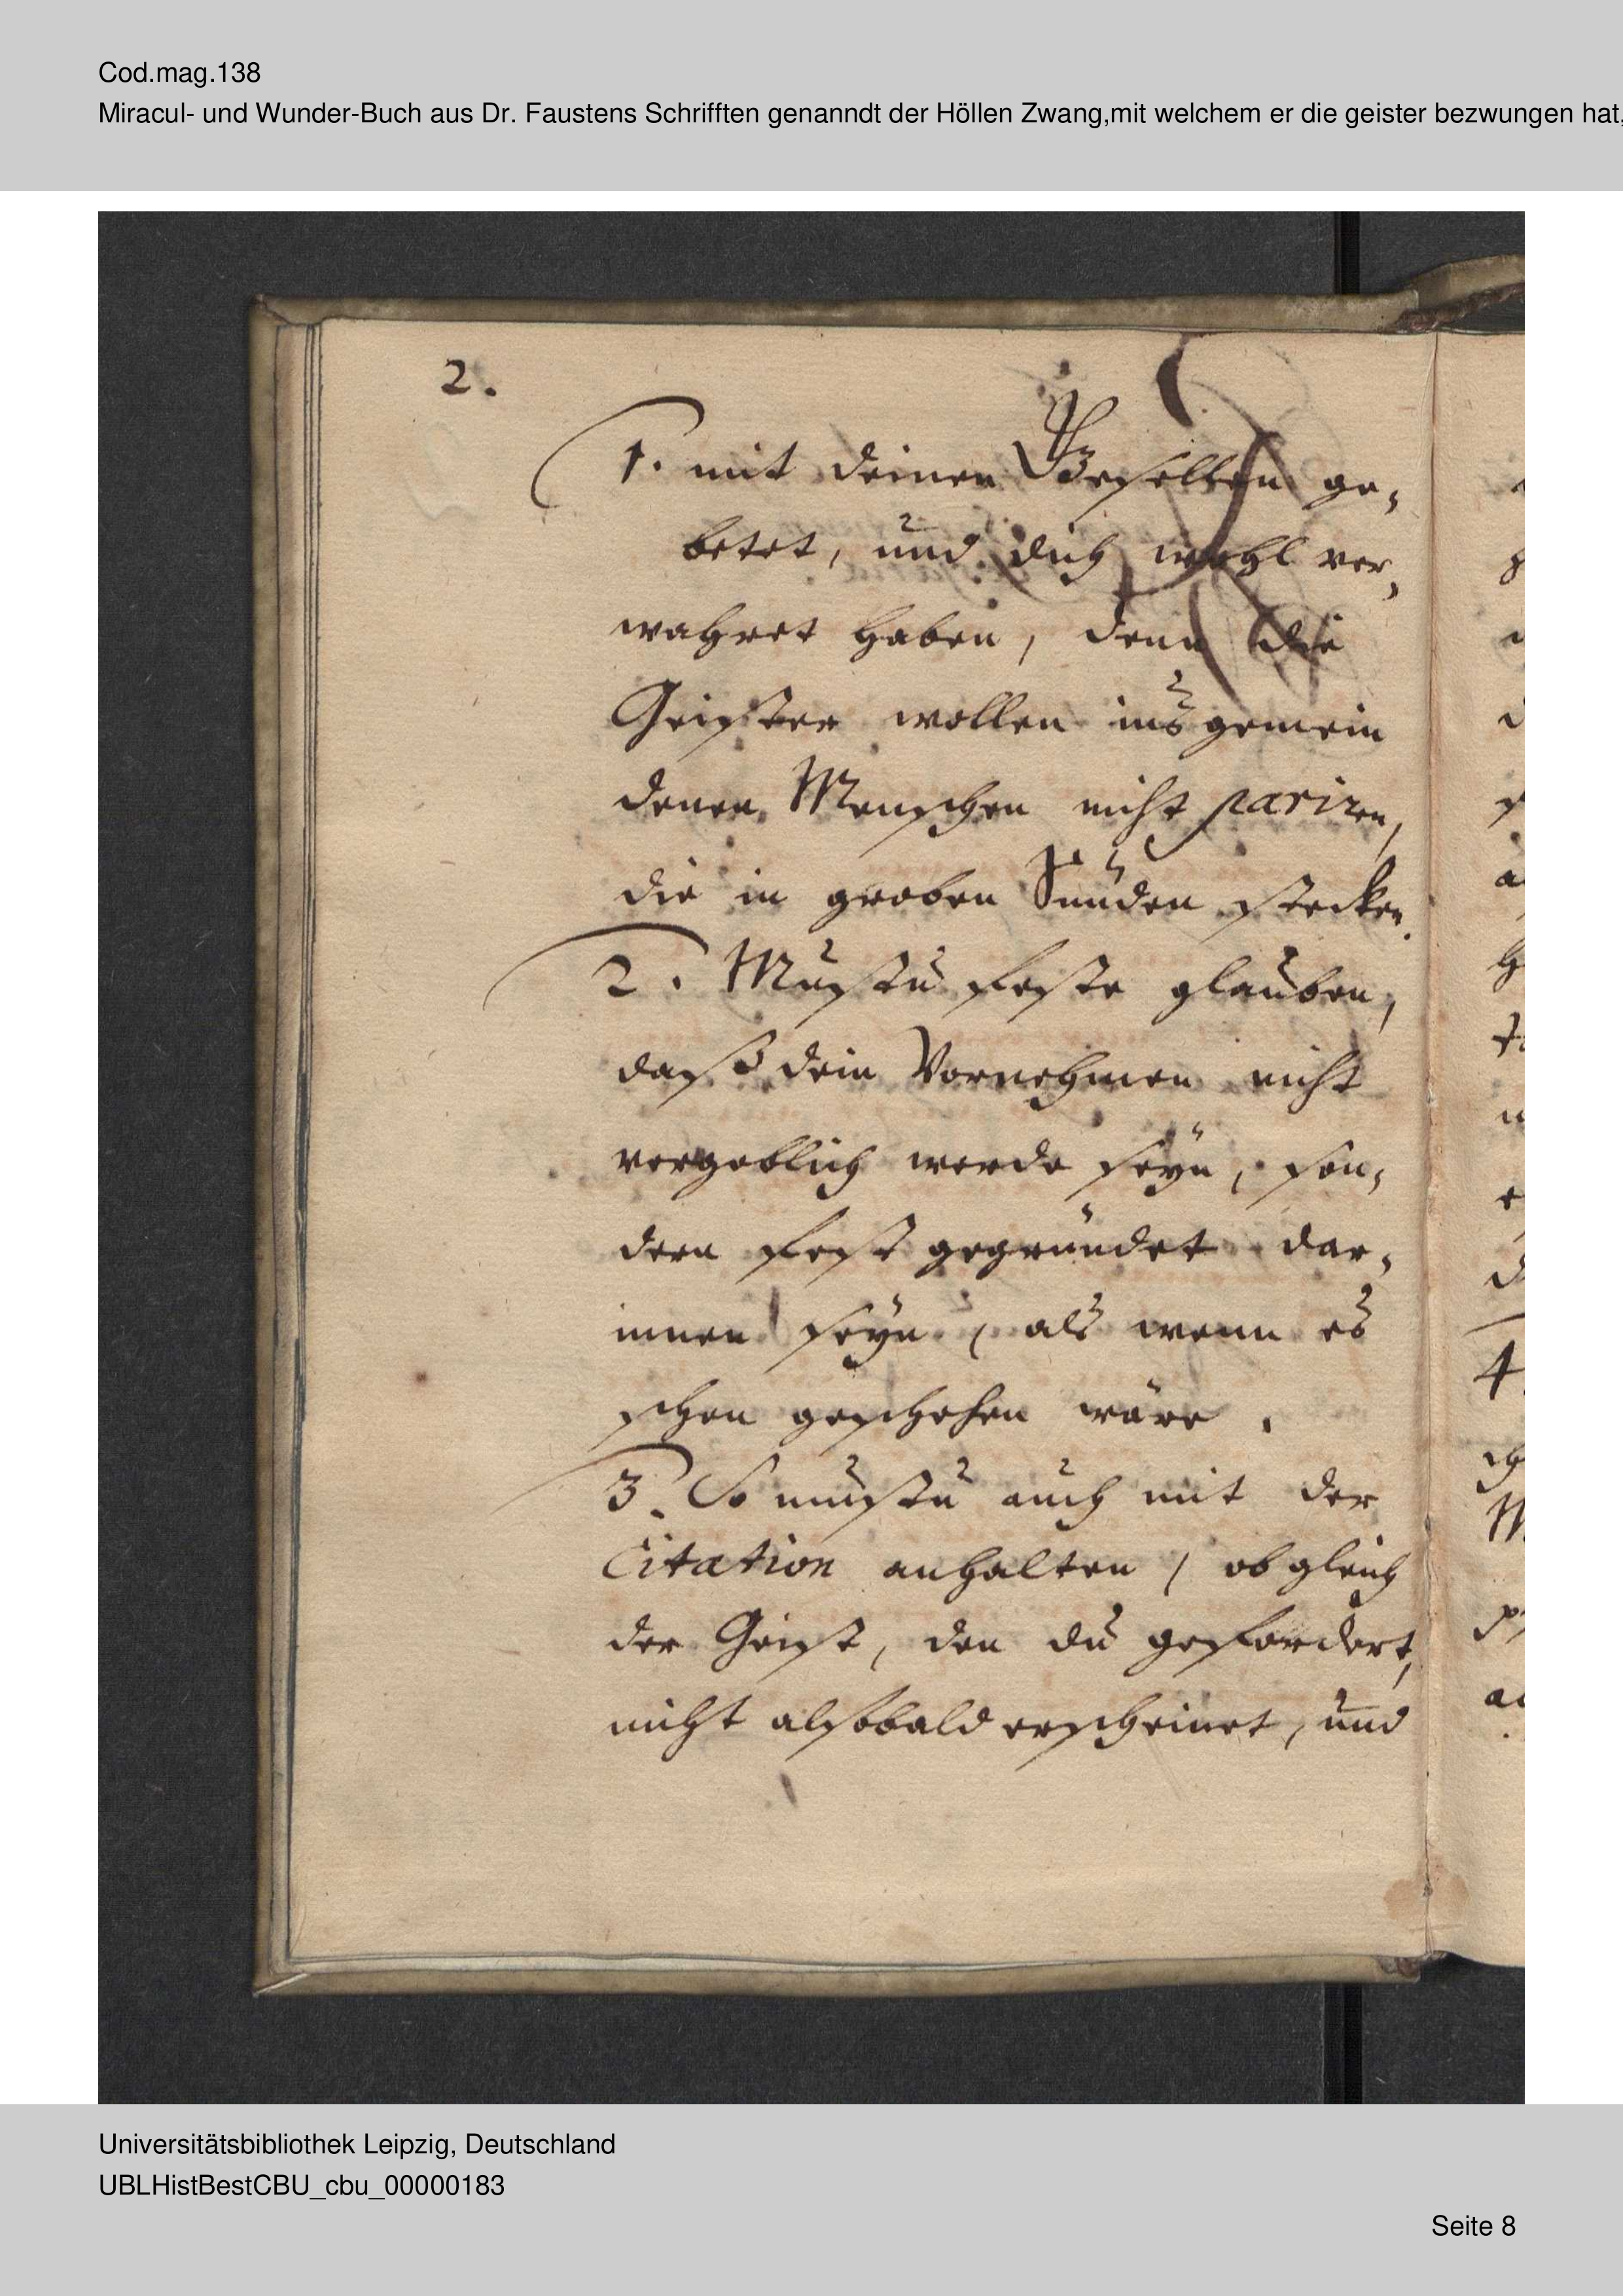 Cod.mag.138
Miracul- und Wunder-Buch aus Dr. Faustens Schrifften genanndt der Höllen Zwang,mit welchem er die geister bezwungen hat,
2.
1. mit deinen Gesellen ge,
betet, und dich wohl ver,
wahret haben, denn die
Geister wollen ins gemein
denen Menschen nicht pariren,
die in groben Sünden stecken.
2. Mustu feste glauben,
daß dein Vornehmen nicht
vergeblich werde seyn, son,
dern fest gegründet dar,
innen seyn, als wenn es
schon geschehen wäre.
3. So mustu auch mit der
Citation anhalten, ob gleich
der Geist, den du gefordert,
nicht alsobald erscheinet, und
Universitätsbibliothek Leipzig, Deutschland
UBLHistBestCBU_cbu_00000183
Seite 8